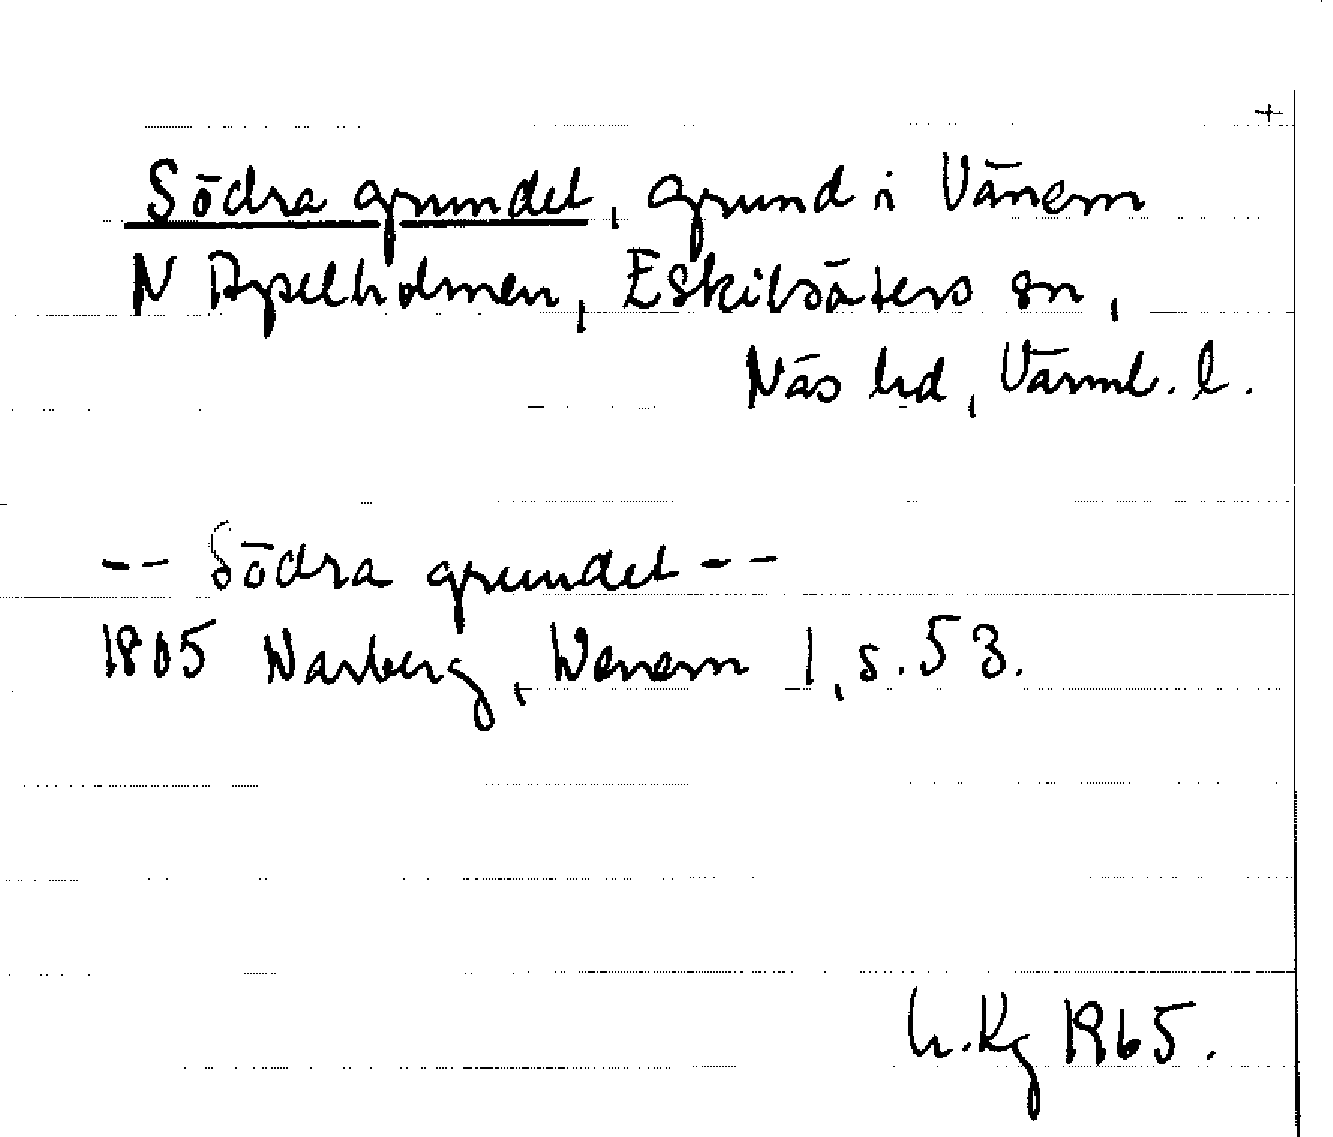 +
Södra grundet, grund i Vänern
N Apelholmen, Eskilsäters sn,
Näs hd, Värml. l.
-- Södra grundet --
1805 Warberg, Wenern 1, s. 53.
h. Kg 1965.